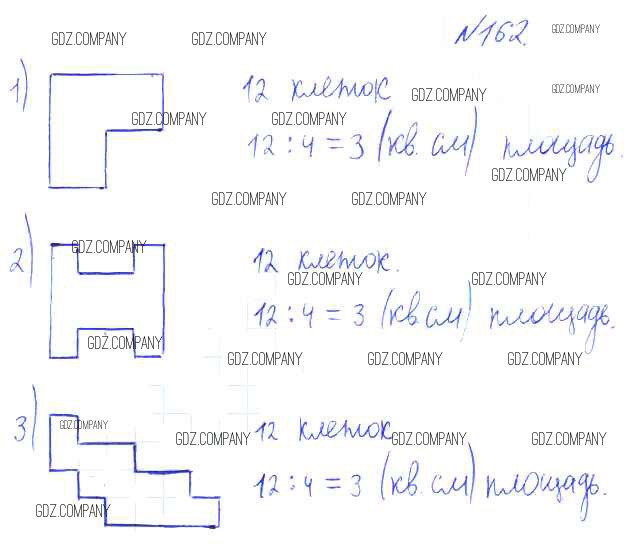 №162.
GDZ.COMPANY GDZ.COMPANY GDZ.COMPANY
1) 12 клеток
GDZ.COMPANY GDZ.COMPANY
GDZ.COMPANY GDZ.COMPANY
12 : 4 = 3 (кв. см) площадь.
GDZ.COMPANY
GDZ.COMPANY GDZ.COMPANY
2) GDZ.COMPANY 12 клеток.
GDZ.COMPANY GDZ.COMPANY
12 : 4 = 3 (кв. см) площадь.
GDZ.COMPANY
GDZ.COMPANY GDZ.COMPANY GDZ.COMPANY
3) GDZ.COMPANY 12 клеток
GDZ.COMPANY GDZ.COMPANY GDZ.COMPANY
12 : 4 = 3 (кв. см) площадь.
GDZ.COMPANY